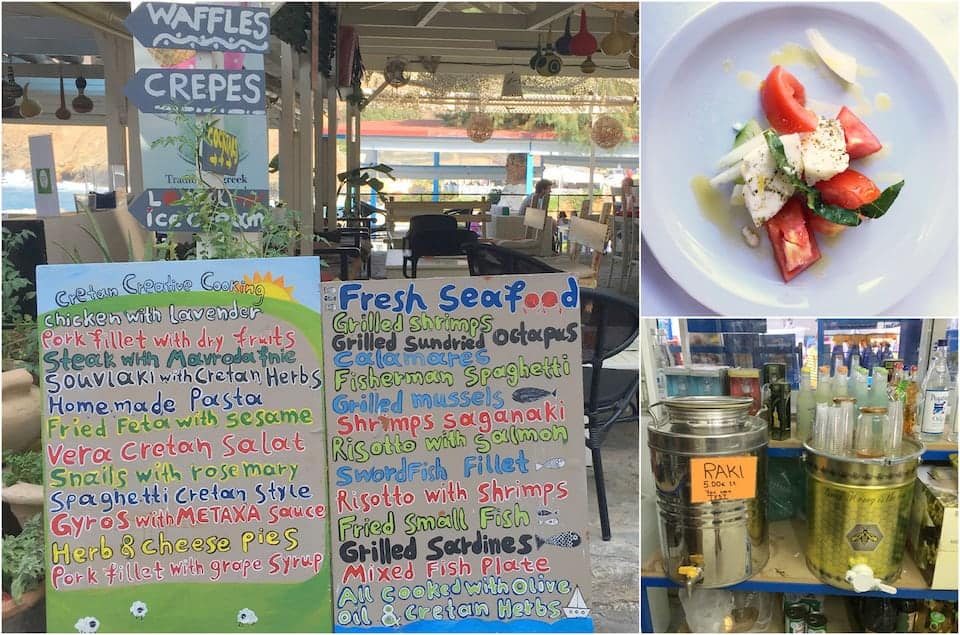 WAFFLES
CREPES
Traditional Greek
Local
ice cream
Cretan Creative Cooking
chicken with lavender
Pork fillet with dry fruits
Steak with Mavrodafnie
Souvlaki with Cretan Herbs
Home made Pasta
Fried Feta with sesame
Vera Cretan Salat
Snails with rosemary
Spaghetti Cretan Style
Gyros with METAXA Sauce
Herb & cheese pies
Pork fillet with grape syrup
Fresh Seafood
Grilled shrimps
Grilled Sundried Octapus
Calamares
Fisherman Spaghetti
Grilled mussels
Shrimps saganaki
Risotto with Salmon
SwordFish Fillet
Risotto with Shrimps
Fried Small Fish
Grilled Sardines
Mixed Fish Plate
All Cooked with Olive
Oil & Cretan Herbs
RAKI
5.00€ lt
You can
TEST